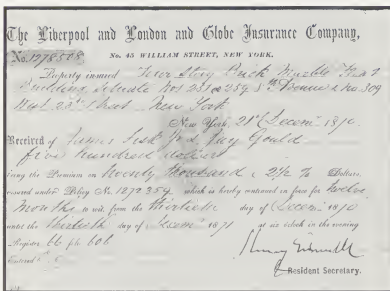 The Liverpool and London and Globe Insurance Company,
No. 1278508 No. 45 WILLIAM STREET, NEW YORK.
Property insured Four Story Brick Marble Front
Building Situate Nos
West 23d Street New York
New York, 21st Decem 1870
Received of James Fisk Jr & Jay Gould
five hundred dollars
being the Premium on twenty thousand Dollars,
insured under Policy No. 1272359 which is hereby continued in force for twelve
Months to wit, from the thirtieth day of Decem 1870
until the thirtieth day of Decem 1871 at six o'clock in the evening
Register 66 fo 606
Entered
Resident Secretary.